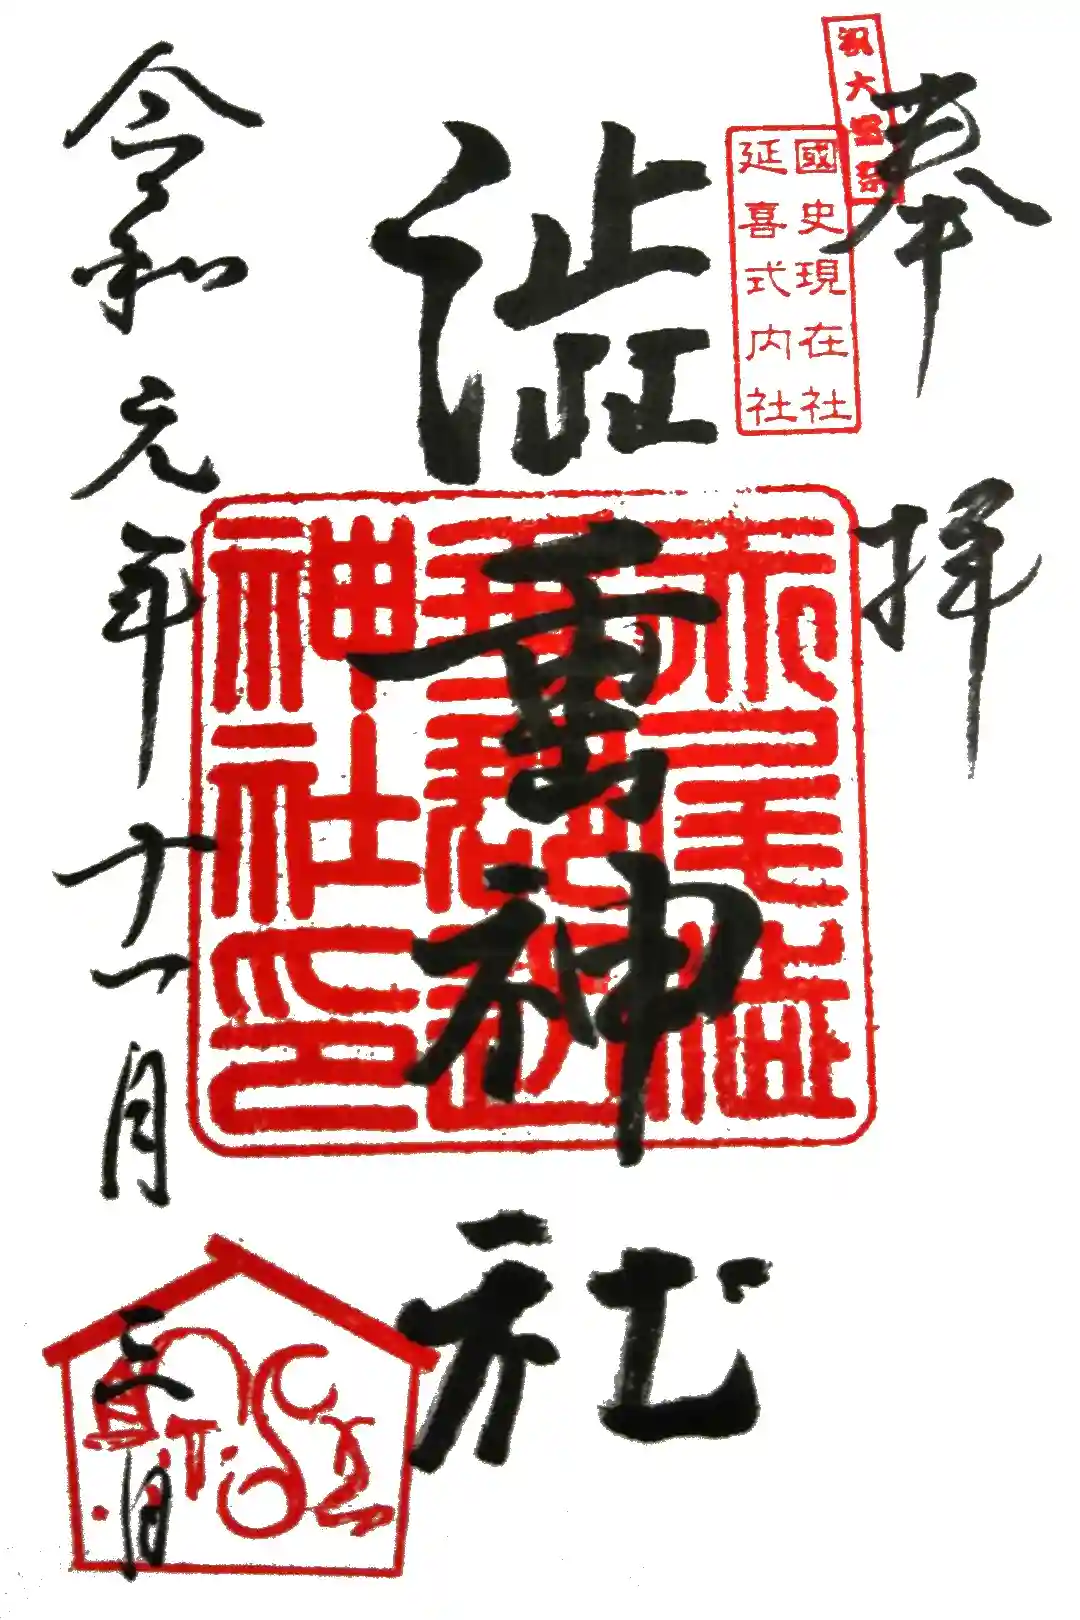 奉拝
祝大嘗祭
國史現在社
延喜式内社
澁垂神社
赤尾澁
垂郡邊
神社印
令和元年十一月三日